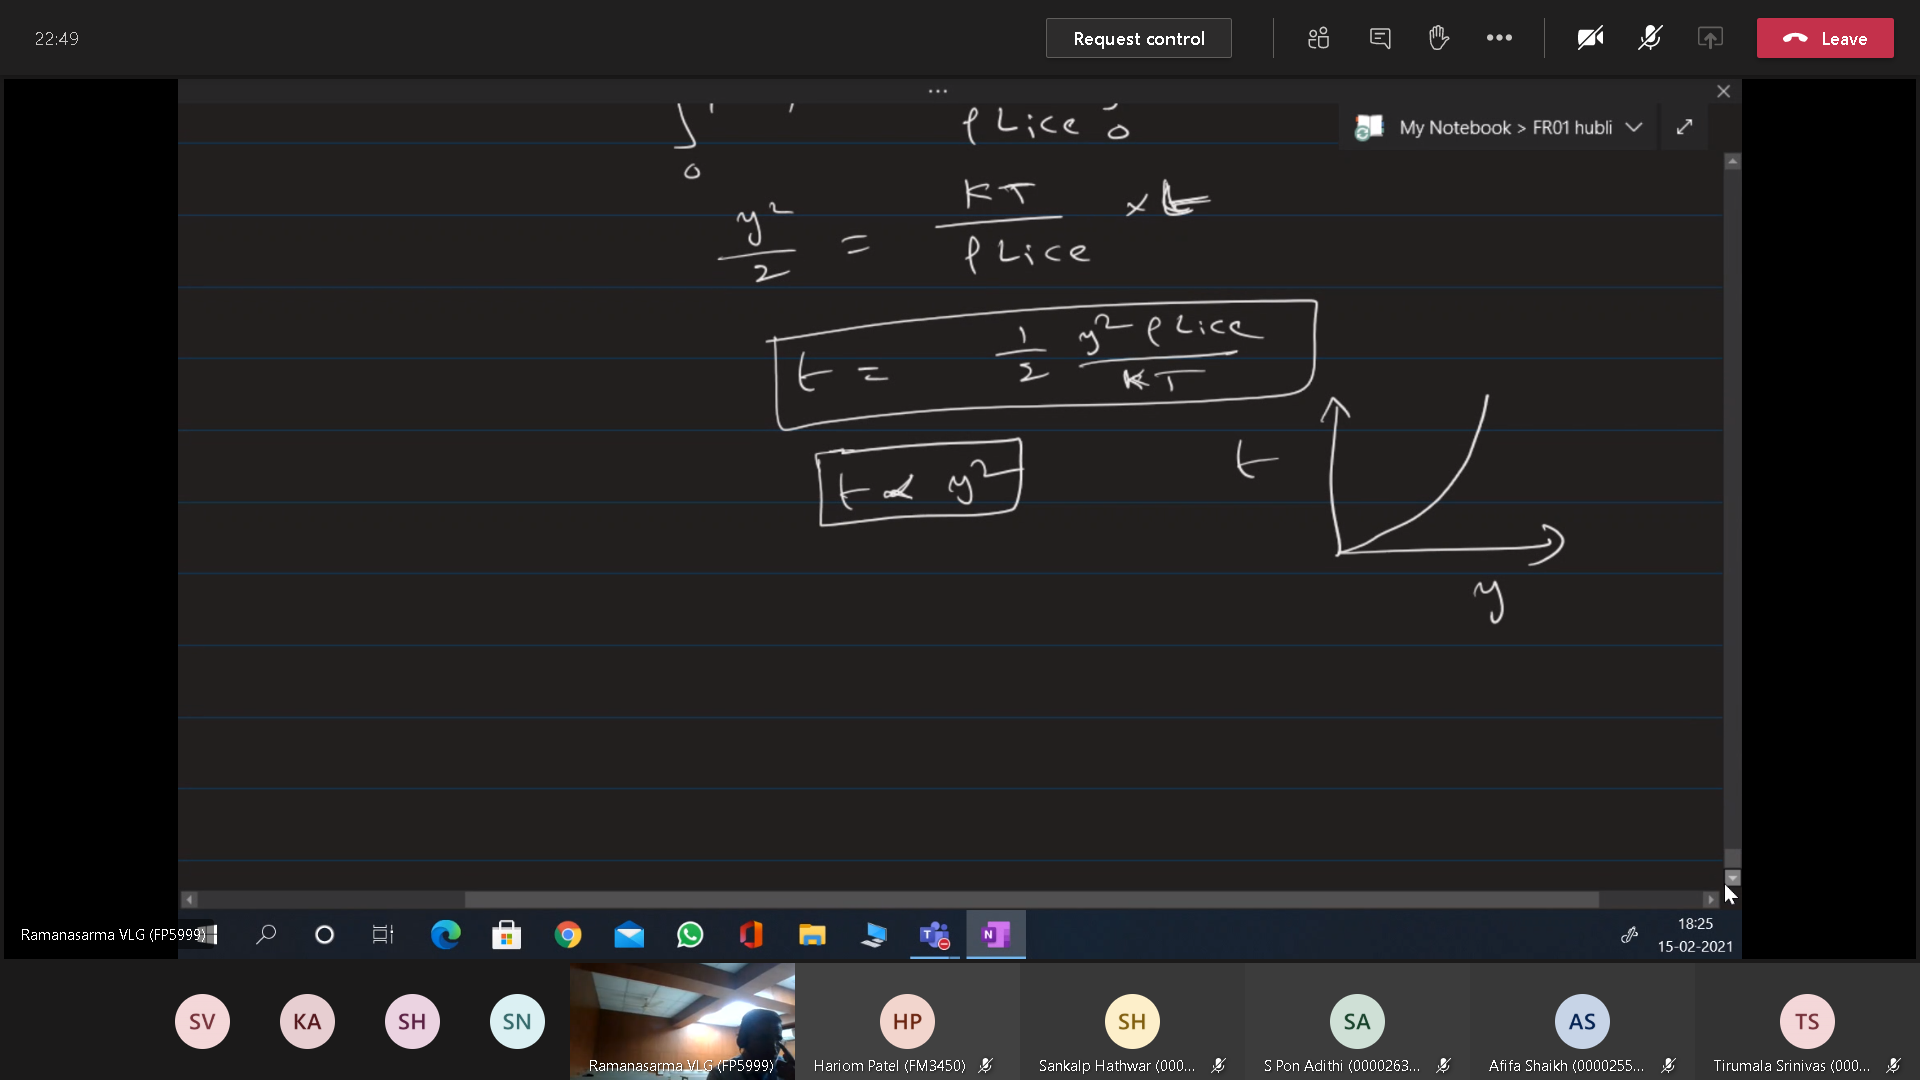 22:49
Request control
Leave
My Notebook > FR01 hubli
∫ 0
ρ Lice 0
y²/2 = KT/ρ Lice × t
t = 1/2 y² ρ Lice/KT
t ∝ y²
t
y
Ramanasarma VLG (FP5999)
18:25
15-02-2021
SV
KA
SH
SN
HP
SH
SA
AS
TS
Ramanasarma VLG (FP5999)
Hariom Patel (FM3450)
Sankalp Hathwar (000...
S Pon Adithi (0000263...
Afifa Shaikh (0000255...
Tirumala Srinivas (000...